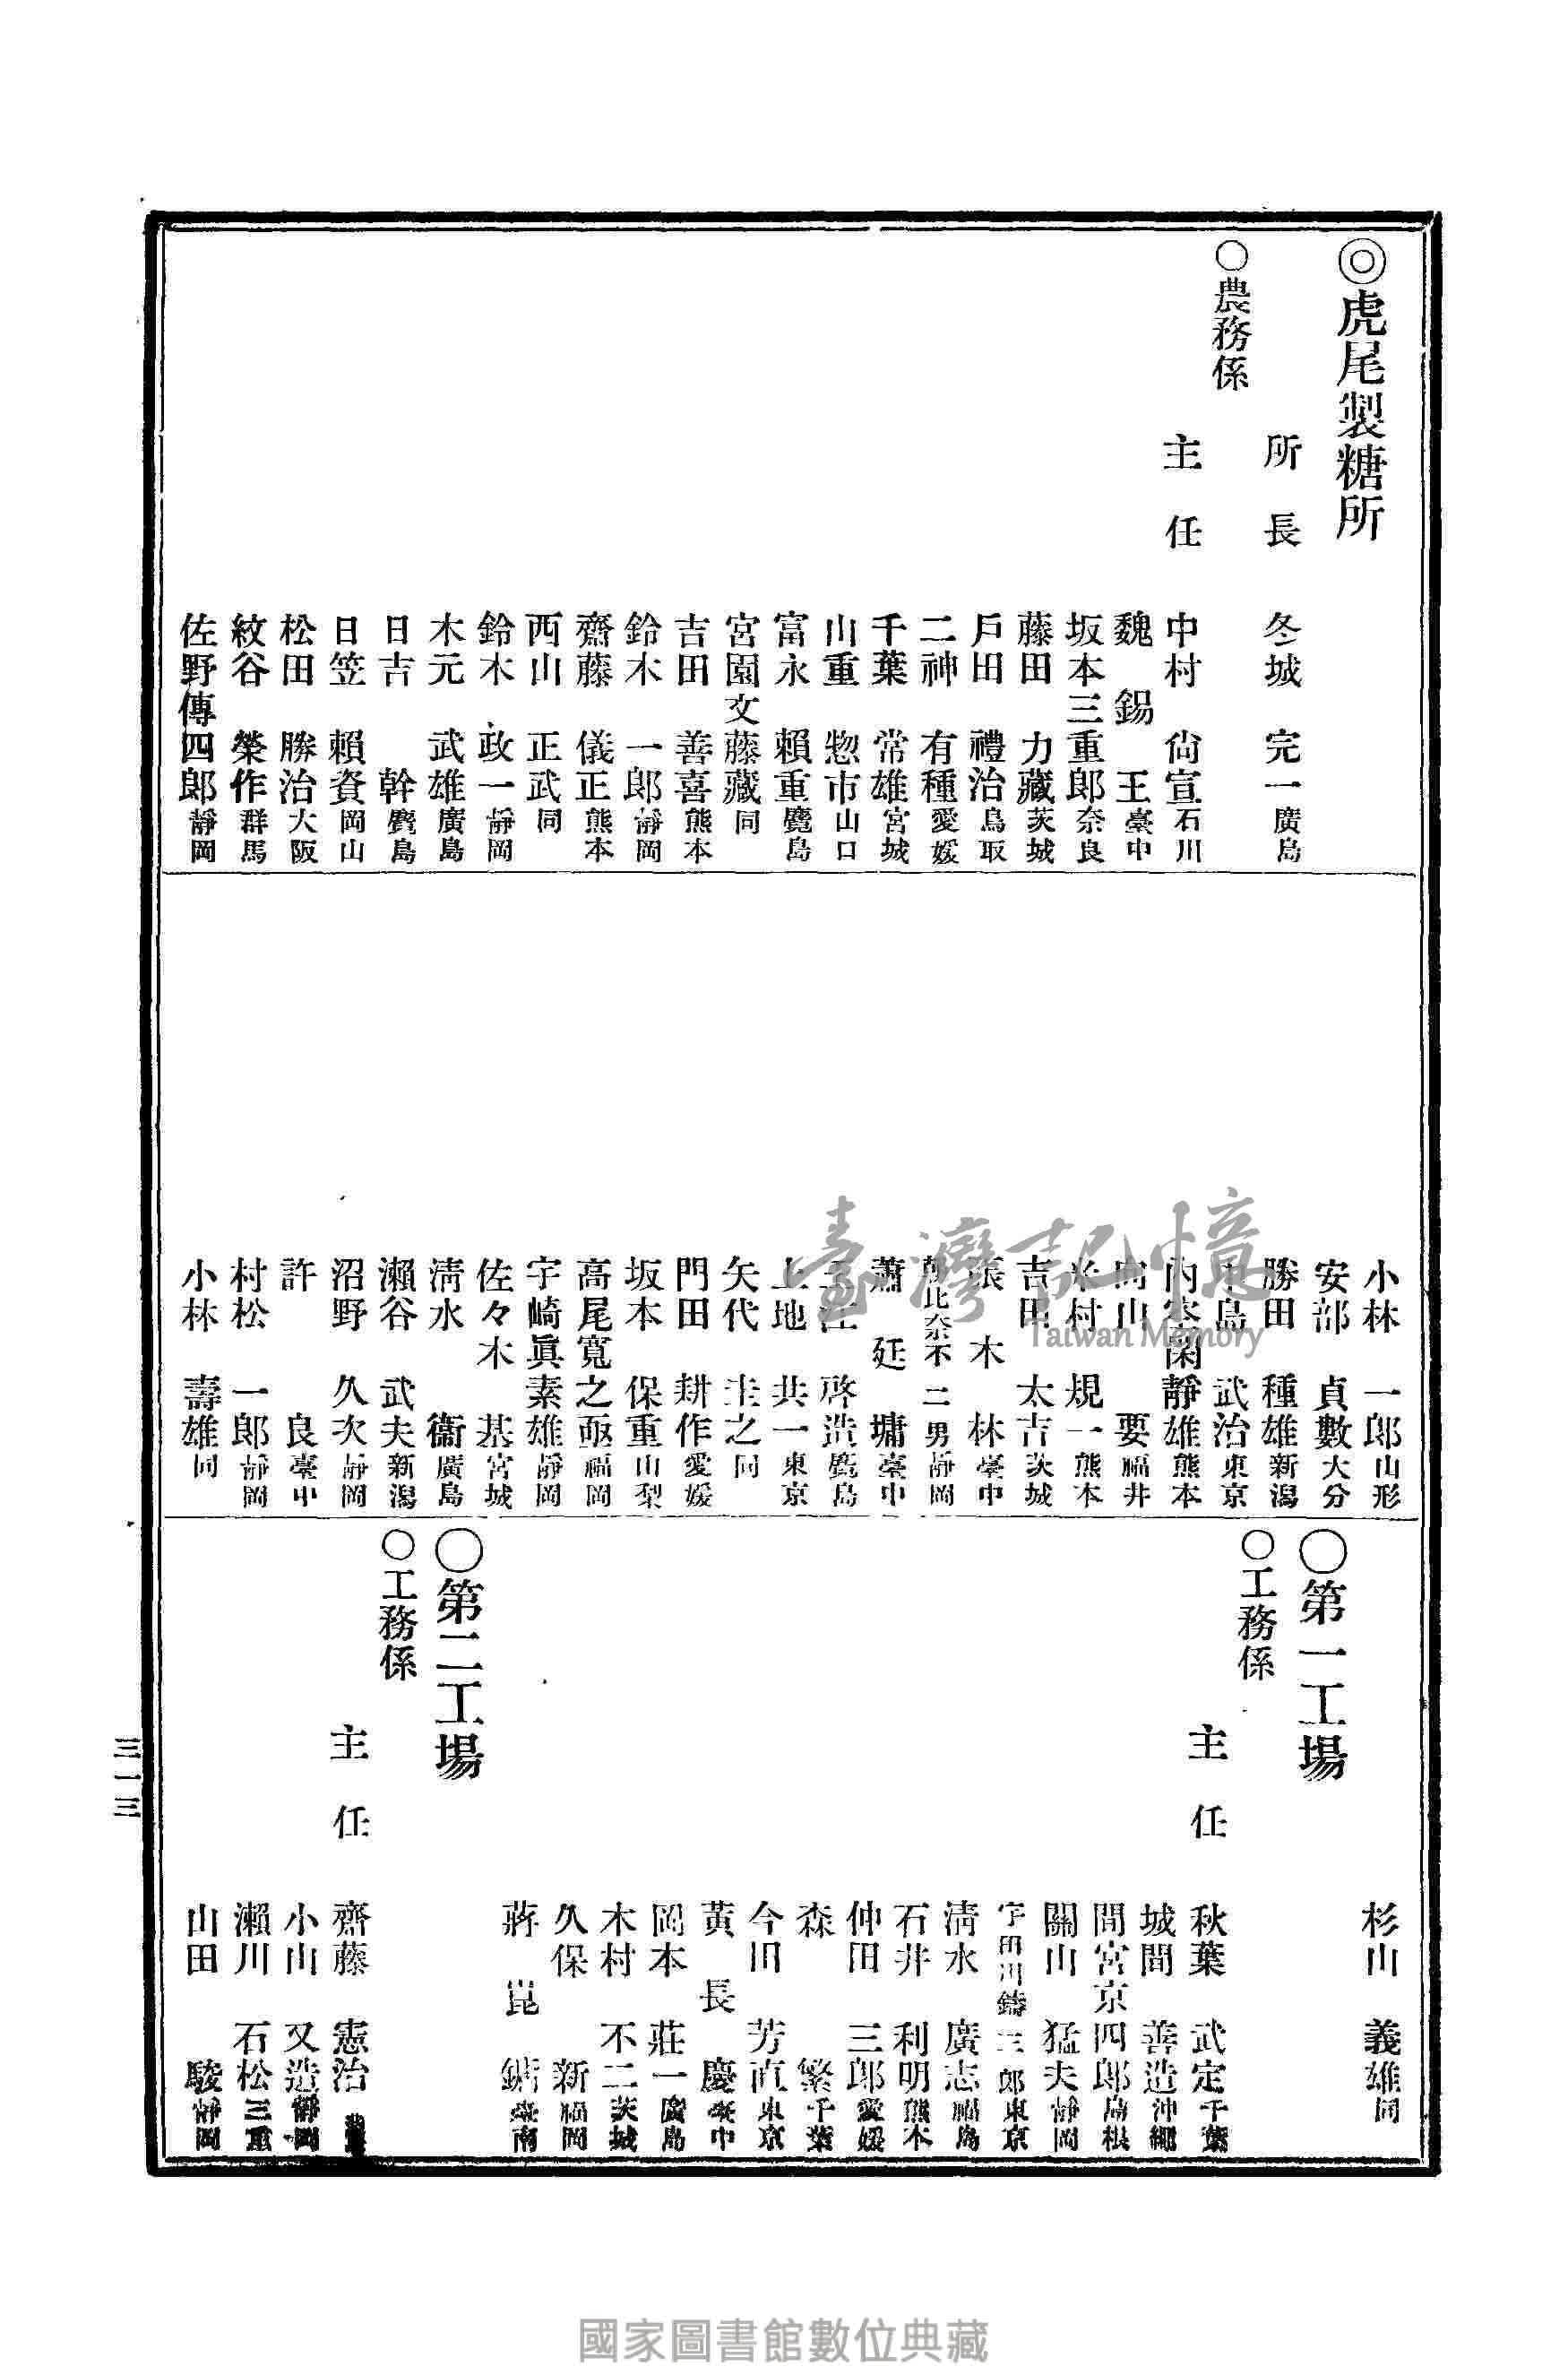 ◎虎尾製糖所
所長 冬城 完一 廣島
○農務係
主任 中村 尙宣 石川
魏 錫 王 臺中
坂本三重郎 奈良
藤田 力藏 茨城
戶田 禮治 鳥取
二神 有種 愛媛
千葉 常雄 宮城
山重 惣市 山口
富永 賴重 鹿島
宮園文藤藏 同
吉田 善喜 熊本
鈴木 一郎 靜岡
齋藤 儀正 熊本
西山 正武 同
鈴木 政一 靜岡
木元 武雄 廣島
日吉 幹 鹿島
日笠 賴資 岡山
松田 勝治 大阪
紋谷 榮作 群馬
佐野傳四郎 靜岡
小林 一郎 山形
安部 貞數 大分
勝田 種雄 新潟
島 武治 東京
靜雄 熊本
向山 要 福井
米村 規一 熊本
吉田 太吉 茨城
張 木 林 臺中
朝比奈不二男 靜岡
蕭 廷 墉 臺中
啓造 鹿島
上地 共一 東京
矢代 圭之 同
門田 耕作 愛媛
坂本 保重 山梨
高尾寬之亟 福岡
宇崎眞素雄 靜岡
佐々木 基 宮城
淸水 衞 廣島
瀨谷 武夫 新潟
沼野 久次 靜岡
許 良 臺中
村松 一郎 靜岡
小林 壽雄 同
杉山 義雄 同
○第一工場
○工務係
主任 秋葉 武定 千葉
城間 善造 沖繩
間宮京四郎 島根
關山 猛夫 靜岡
宇田川鑄三郎 東京
淸水 廣志 福島
石井 利明 熊本
仲田 三郎 愛媛
森 繁 千葉
今田 芳直 東京
黃 長 慶 臺中
岡本 莊一 廣島
木村 不二 茨城
久保 新 福岡
蔣 崑 臺南
○第二工場
○工務係
主任 齋藤 憲治
小山 又造 靜岡
瀨川 石松 三重
山田 駿 靜岡
三一三
臺灣記憶
Taiwan Memory
國家圖書館數位典藏